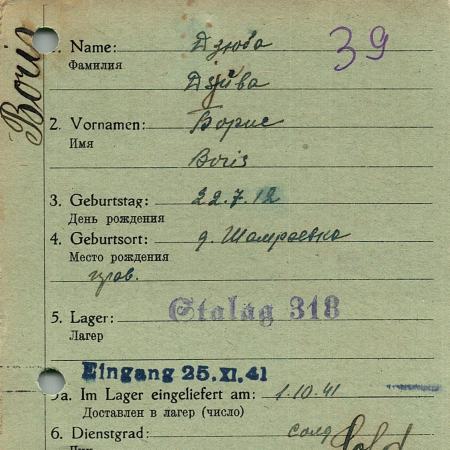 Boris
1. Name: Дзюба 39
Фамилия
Dsjuba
2. Vornamen: Борис
Имя
Boris
3. Geburtstag: 22.7.12
День рождения
4. Geburtsort: д. Шамраевка
Место рождения
5. Lager: Stalag 318
Лагер
Eingang 25.XI.41
5a. Im Lager eingeliefert am: 1.10.41
Доставлен в лагер (число)
6. Dienstgrad: солд Sold